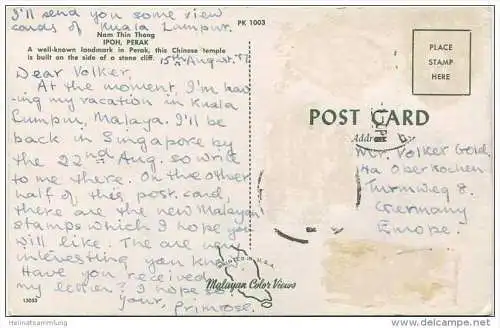 I'll send you some view
cards of Kuala Lumpur.
PK 1003
Nam Thin Thong
IPOH, PERAK
A well-known landmark in Perak, this Chinese temple
is built on the side of a stone cliff.
15th August.
Dear Volker,
At the moment, I'm hav-
ing my vacation in Kuala
Lumpur, Malaya. I'll be
back in Singapore by
the 22nd Aug. so write
to me there. On the other
half of this post card,
there are the new Malayan
stamps which I hope you
will like. The are very
interesting you know.
Have you received
my letter? I hope so.
Your, Primrose.
13053
PLACE
STAMP
HERE
POST CARD
Address
Mr. Volker Gold,
Oberkochen
Turmweg 8.
Germany
Europe.
PRINTED IN U.S.A.
Malayan Color Views
Heimatsammlung
delcampe.net